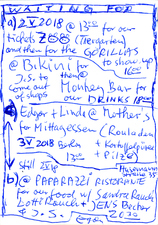 WAITING FOR
a) 2 V 2018 @ 13 00 for our
tickets ZOO (Tiergarten)
and then for the GORILLAS
@ Bikini for to show up
J.S. to them 16 00
come out Monkey Bar for
of shops our DRINKS 18 00
Edgar + Linde @ Mother's
for Mittagessen (Rouladen
3 V 2018 Berlin + Kartoffelpüree
13 00 + Pilze)
still Husemann
b) @ PAPARAZZI RISTORANTE
for our food w/ Sandra Rauch
Lotti Rauch + JENS Becher
& J.S. 20 30